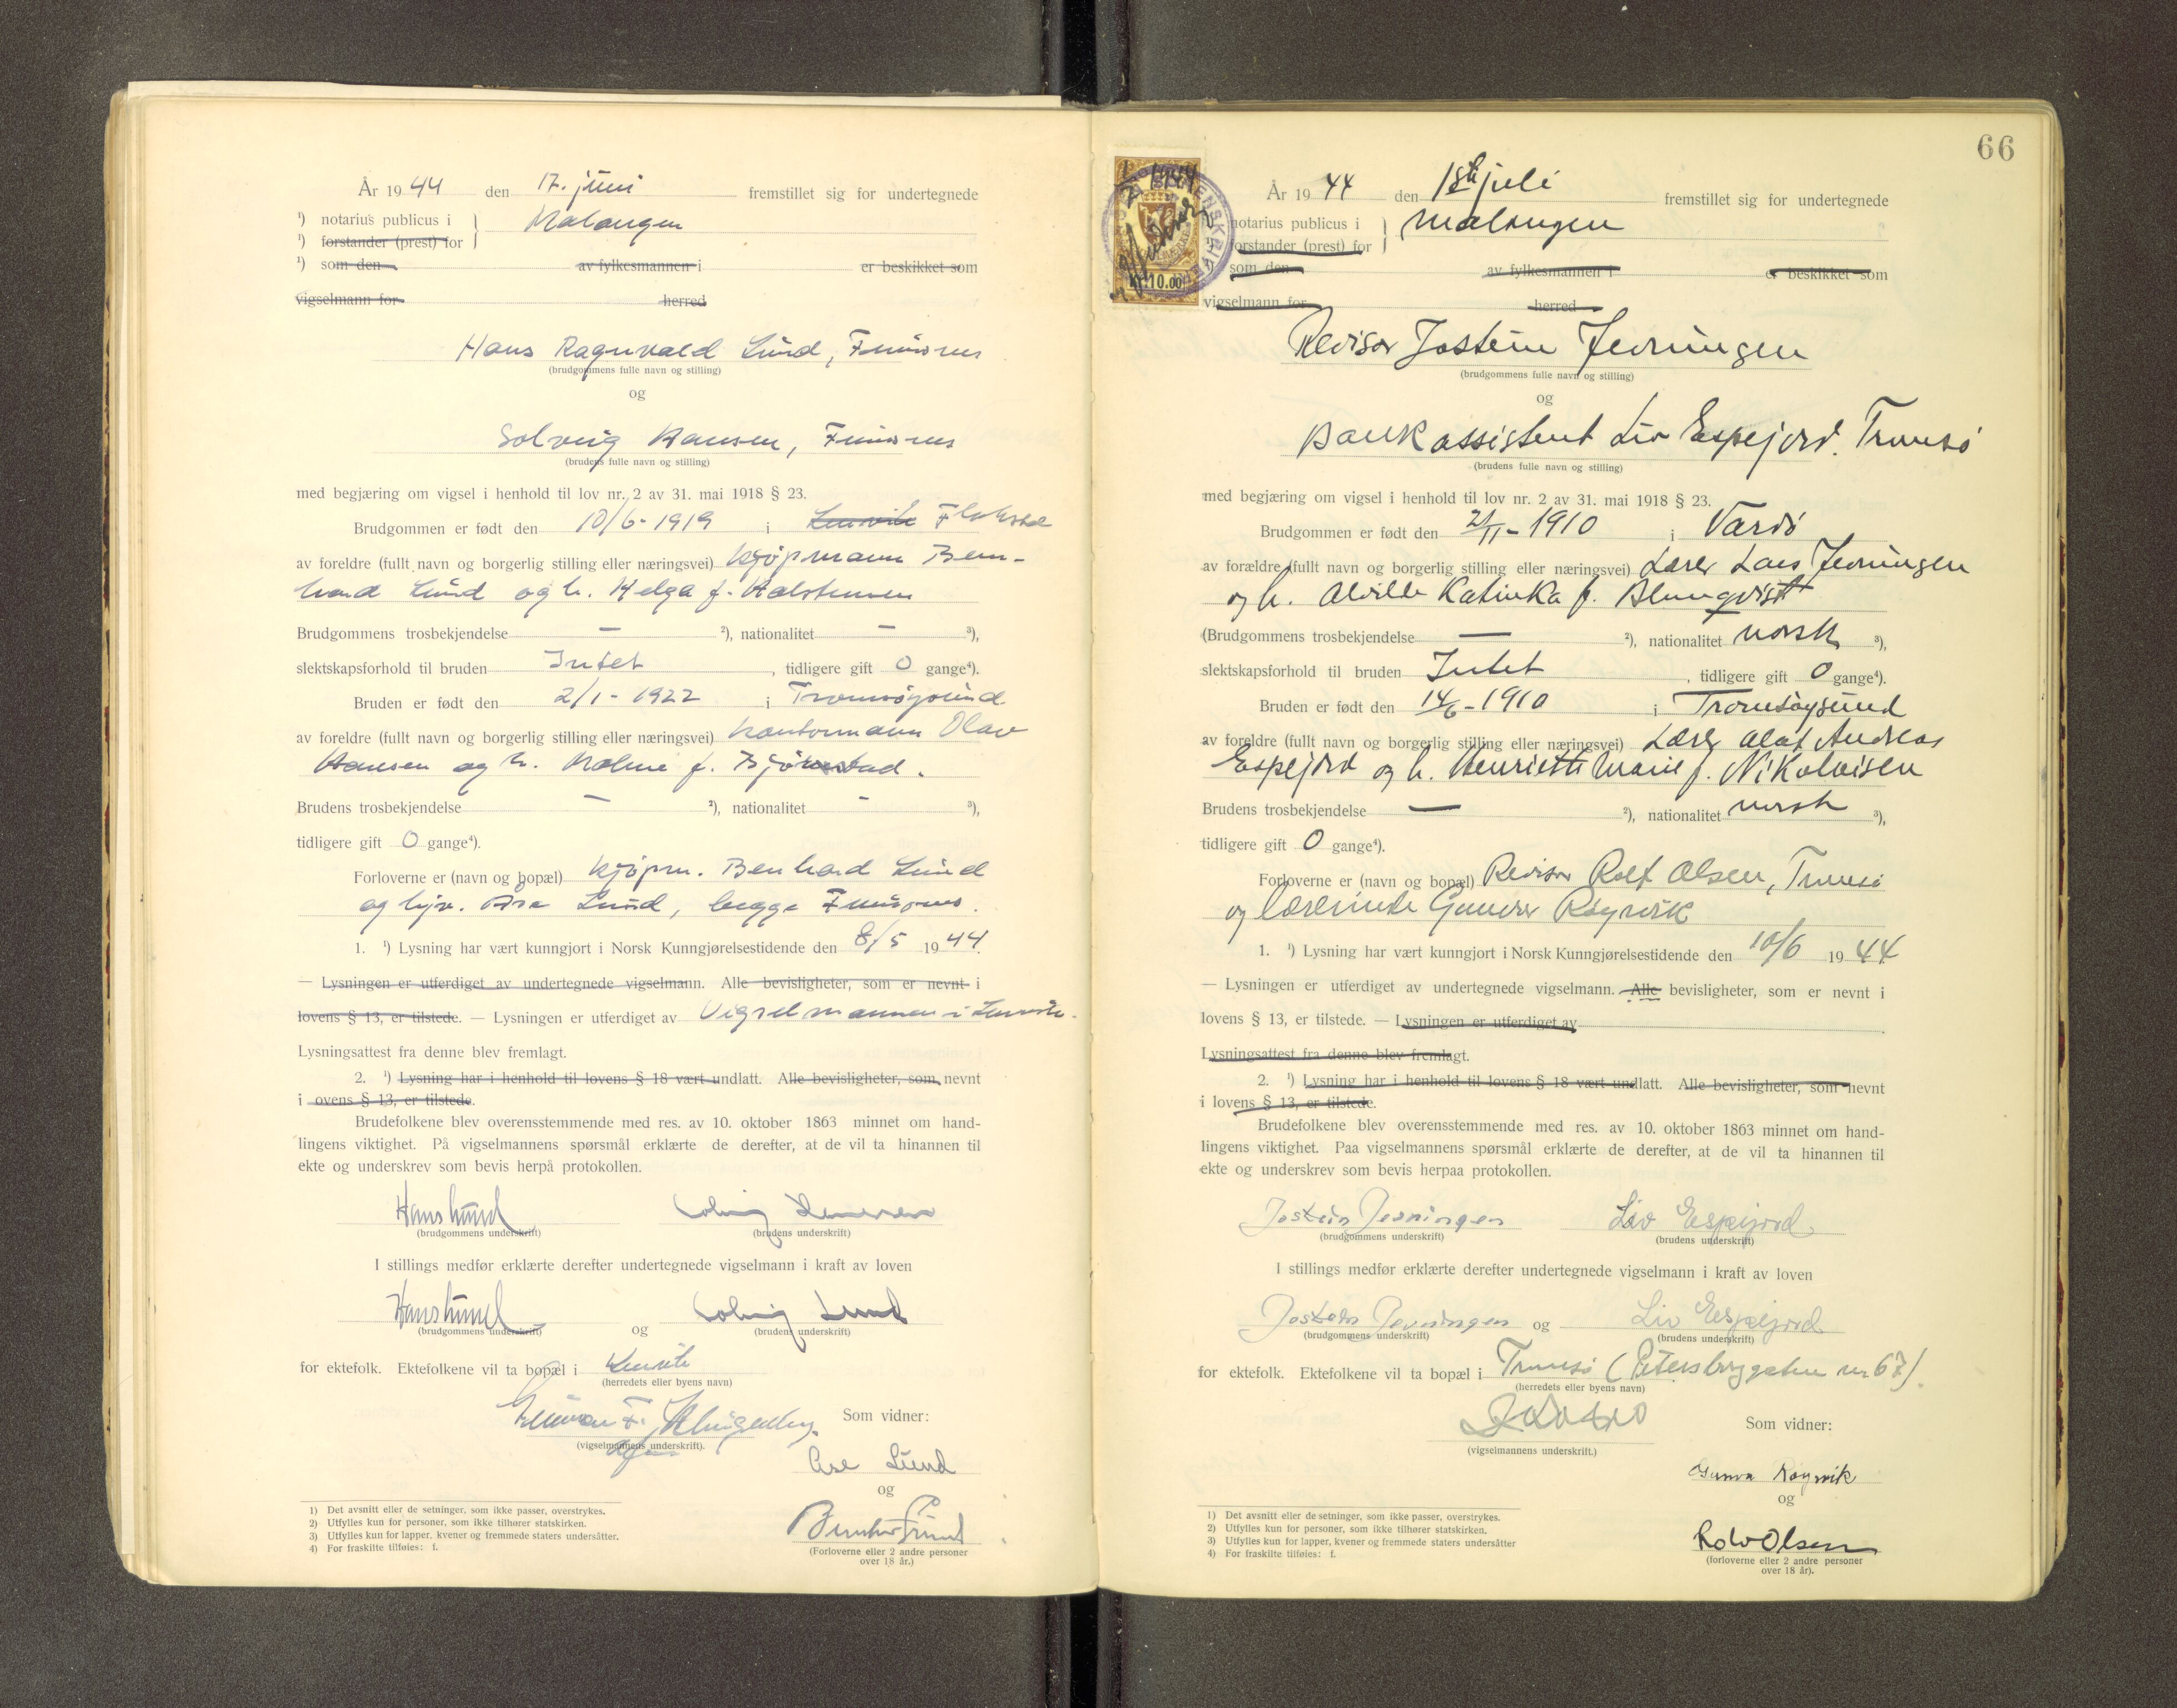 År 1944 den 17. juni fremstillet sig for undertegnede
¹) notarius publicus i } Malangen
¹) forstander (prest) for
¹) som den av fylkesmannen i er beskikket som
vigselmann for herred
Hans Ragnvald Lund, Finnsnes
(brudgommens fulle navn og stilling)
og
Solveig Hansen, Finnsnes
(brudens fulle navn og stilling)
med begjæring om vigsel i henhold til lov nr. 2 av 31. mai 1918 § 23.
Brudgommen er født den 10/6-1919 i Lenvik Flakstad
av foreldre (fullt navn og borgerlig stilling eller næringsvei) kjøpmann Bern-
hard Lund og h. Helga f.
Brudgommens trosbekjendelse — ²), nationalitet — ³),
slektskapsforhold til bruden Intet, tidligere gift 0 gange⁴).
Bruden er født den 2/1-1922 i Tromsøysund
av foreldre (fullt navn og borgerlig stilling eller næringsvei) kontormann Olav
Hansen og h. f.
Brudens trosbekjendelse — ²), nationalitet - ³),
tidligere gift 0 gange⁴).
Forloverne er (navn og bopæl) kjøpm. Bernhard Lund
og Åse Lund, begge Finnsnes.
1. ¹) Lysning har vært kunngjort i Norsk Kunngjørelsestidende den 8/5 1944.
— Lysningen er utferdiget av undertegnede vigselmann. Alle bevisligheter, som er nevnt i
lovens § 13, er tilstede. — Lysningen er utferdiget av Vigselmannen i Lenvik.
Lysningsattest fra denne blev fremlagt.
2. ¹) Lysning har i henhold til lovens § 18 vært undlatt. Alle bevisligheter, som nevnt
i ovens § 13, er tilstede.
Brudefolkene blev overensstemmende med res. av 10. oktober 1863 minnet om hand-
lingens viktighet. På vigselmannens spørsmål erklærte de derefter, at de vil ta hinannen til
ekte og underskrev som bevis herpå protokollen.
Hans Lund Solveig Hansen
(brudgommens underskrift) (brudens underskrift)
I stillings medfør erklærte derefter undertegnede vigselmann i kraft av loven
Hans Lund og Solveig Lund
(brudgommens underskrift) (brudens underskrift)
for ektefolk. Ektefolkene vil ta bopæl i Lenvik
(herredets eller byens navn)
Som vidner:
(vigselmannens underskrift).
Åse Lund
og
Bernhard Lund
(Forloverne eller 2 andre personer
over 18 år.)
1) Det avsnitt eller de setninger, som ikke passer, overstrykes.
2) Utfylles kun for personer, som ikke tilhører statskirken.
3) Utfylles kun for lapper, kvener og fremmede staters undersåtter.
4) For fraskilte tilføies: f.
66
1944
10.00
År 1944 den 1ste juli fremstillet sig for undertegnede
notarius publicus i } Malangen
forstander (prest) for
som den av fylkesmannen i er beskikket som
vigselmann for herred
Revisor Jostein Jevningen
(brudgommens fulle navn og stilling)
og
Bankassistent Liv Espejord. Tromsø
(brudens fulle navn og stilling)
med begjæring om vigsel i henhold til lov nr. 2 av 31. mai 1918 § 23.
Brudgommen er født den 21/11-1910 i Vardø
av forældre (fullt navn og borgerlig stilling eller næringsvei) Lærer Lars Jevningen
og h. Alvilde Katinka f. Blumqvist
(Brudgommens trosbekjendelse — ²), nationalitet norsk ³),
slektskapsforhold til bruden Intet, tidligere gift 0 gange⁴).
Bruden er født den 14/6-1910 i Tromsøysund
av foreldre (fullt navn og borgerlig stilling eller næringsvei) Lærer Olaf Andreas
Espejord og h. Henriette Marie f. Nikolaisen
Brudens trosbekjendelse — ²), nationalitet norsk ³),
tidligere gift 0 gange⁴).
Forloverne er (navn og bopæl) Revisor Rolf Olsen, Tromsø
og lærerinde Gunvor Røyrvik
1. ¹) Lysning har vært kunngjort i Norsk Kunngjørelsestidende den 10/6 1944
— Lysningen er utferdiget av undertegnede vigselmann. Alle bevisligheter, som er nevnt i
lovens § 13, er tilstede. — Lysningen er utferdiget av
Lysningsattest fra denne blev fremlagt.
2. ¹) Lysning har i henhold til lovens § 18 vært undlatt. Alle bevisligheter, som nevnt
i lovens § 13, er tilstede.
Brudefolkene blev overensstemmende med res. av 10. oktober 1863 minnet om hand-
lingens viktighet. Paa vigselmannens spørsmål erklærte de derefter, at de vil ta hinannen til
ekte og underskrev som bevis herpaa protokollen.
Jostein Jevningen Liv Espejord
(brudgommens underskrift) (brudens underskrift)
I stillings medfør erklærte derefter undertegnede vigselmann i kraft av loven
Jostein Jevningen og Liv Espejord
(brudgommens underskrift) (brudens underskrift)
for ektefolk. Ektefolkene vil ta bopæl i Tromsø (Petersborggaten nr 67).
(herredets eller byens navn)
Som vidner:
(vigselmannens underskrift.)
Gunvor Røyrvik
og
Rolv Olsen
(forloverne eller 2 andre personer
over 18 år).
1) Det avsnitt eller de setninger, som ikke passer, overstrykes.
2) Utfylles kun for personer, som ikke tilhører statskirken.
3) Utfylles kun for lapper, kvener og fremmede staters undersåtter
4) For fraskilte tilføies: f.